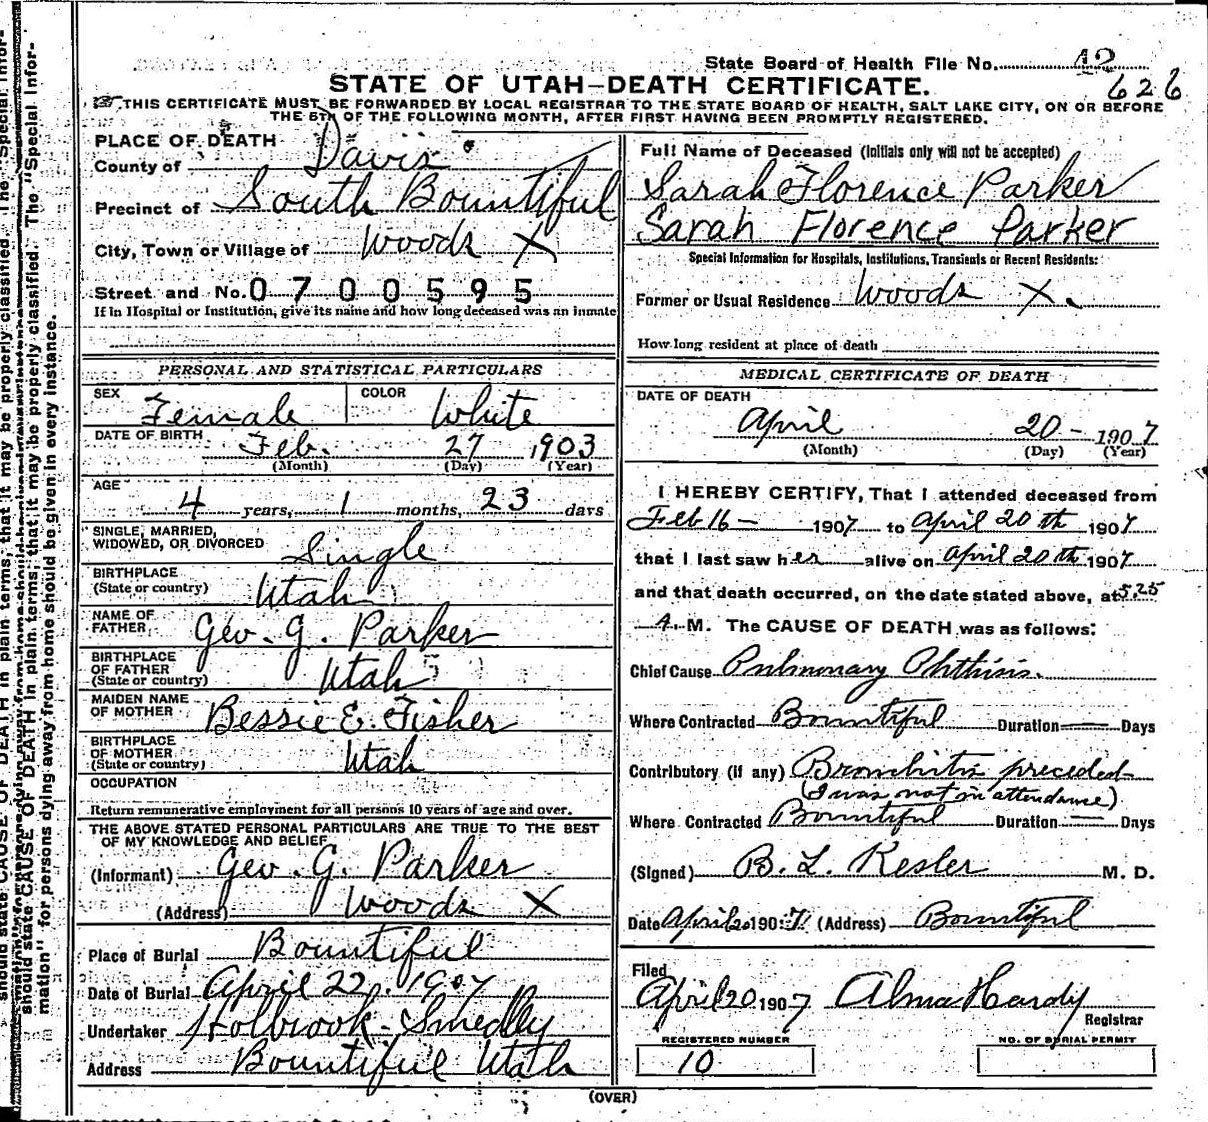 State Board of Health File No. 42
626
STATE OF UTAH-DEATH CERTIFICATE.
THIS CERTIFICATE MUST BE FORWARDED BY LOCAL REGISTRAR TO THE STATE BOARD OF HEALTH, SALT LAKE CITY, ON OR BEFORE
THE 5TH OF THE FOLLOWING MONTH, AFTER FIRST HAVING BEEN PROMPTLY REGISTERED.
PLACE OF DEATH
County of Davis
Precinct of South Bountiful
City, Town or Village of Woods X
Street and No. 0700595
If in Hospital or Institution, give its name and how long deceased was an inmate
PERSONAL AND STATISTICAL PARTICULARS
SEX Female COLOR White
DATE OF BIRTH Feb. 27 1903
(Month) (Day) (Year)
AGE
4 years, 1 months, 23 days
SINGLE, MARRIED,
WIDOWED, OR DIVORCED Single
BIRTHPLACE
(State or country) Utah
NAME OF
FATHER Geo. G. Parker
BIRTHPLACE
OF FATHER
(State or country) Utah
MAIDEN NAME
OF MOTHER Bessie E. Fisher
BIRTHPLACE
OF MOTHER
(State or country) Utah
OCCUPATION
Return remunerative employment for all persons 10 years of age and over.
THE ABOVE STATED PERSONAL PARTICULARS ARE TRUE TO THE BEST
OF MY KNOWLEDGE AND BELIEF
(Informant) Geo. G. Parker
(Address) Woods X
Place of Burial Bountiful
Date of Burial April 22. 1907
Undertaker Holbrook-Smedley
Address Bountiful Utah
Full Name of Deceased (Initials only will not be accepted)
Sarah Florence Parker
Sarah Florence Parker
Special Information for Hospitals, Institutions, Transients or Recent Residents:
Former or Usual Residence Woods X.
How long resident at place of death
MEDICAL CERTIFICATE OF DEATH
DATE OF DEATH
April 20 - 1907
(Month) (Day) (Year)
I HEREBY CERTIFY, That I attended deceased from
Feb 16 - 1907 to April 20th 1907
that I last saw her alive on April 20th 1907
and that death occurred, on the date stated above, at 5.25
A. M. The CAUSE OF DEATH was as follows:
Chief Cause Pulmonary Phthisis.
Where Contracted Bountiful Duration — Days
Contributory (if any) Bronchitis preceded
(I was not in attendance)
Where Contracted Bountiful Duration — Days
(Signed) B. L. Kesler M. D.
Date April 20 1907 (Address) Bountiful
Filed
April 20 1907 Alma Hardy
Registrar
REGISTERED NUMBER NO. OF BURIAL PERMIT
10
(OVER)
should state CAUSE OF DEATH in plain terms, that it may be properly classified. The "Special Infor-
mation" for persons dying away from home should be given in every instance.